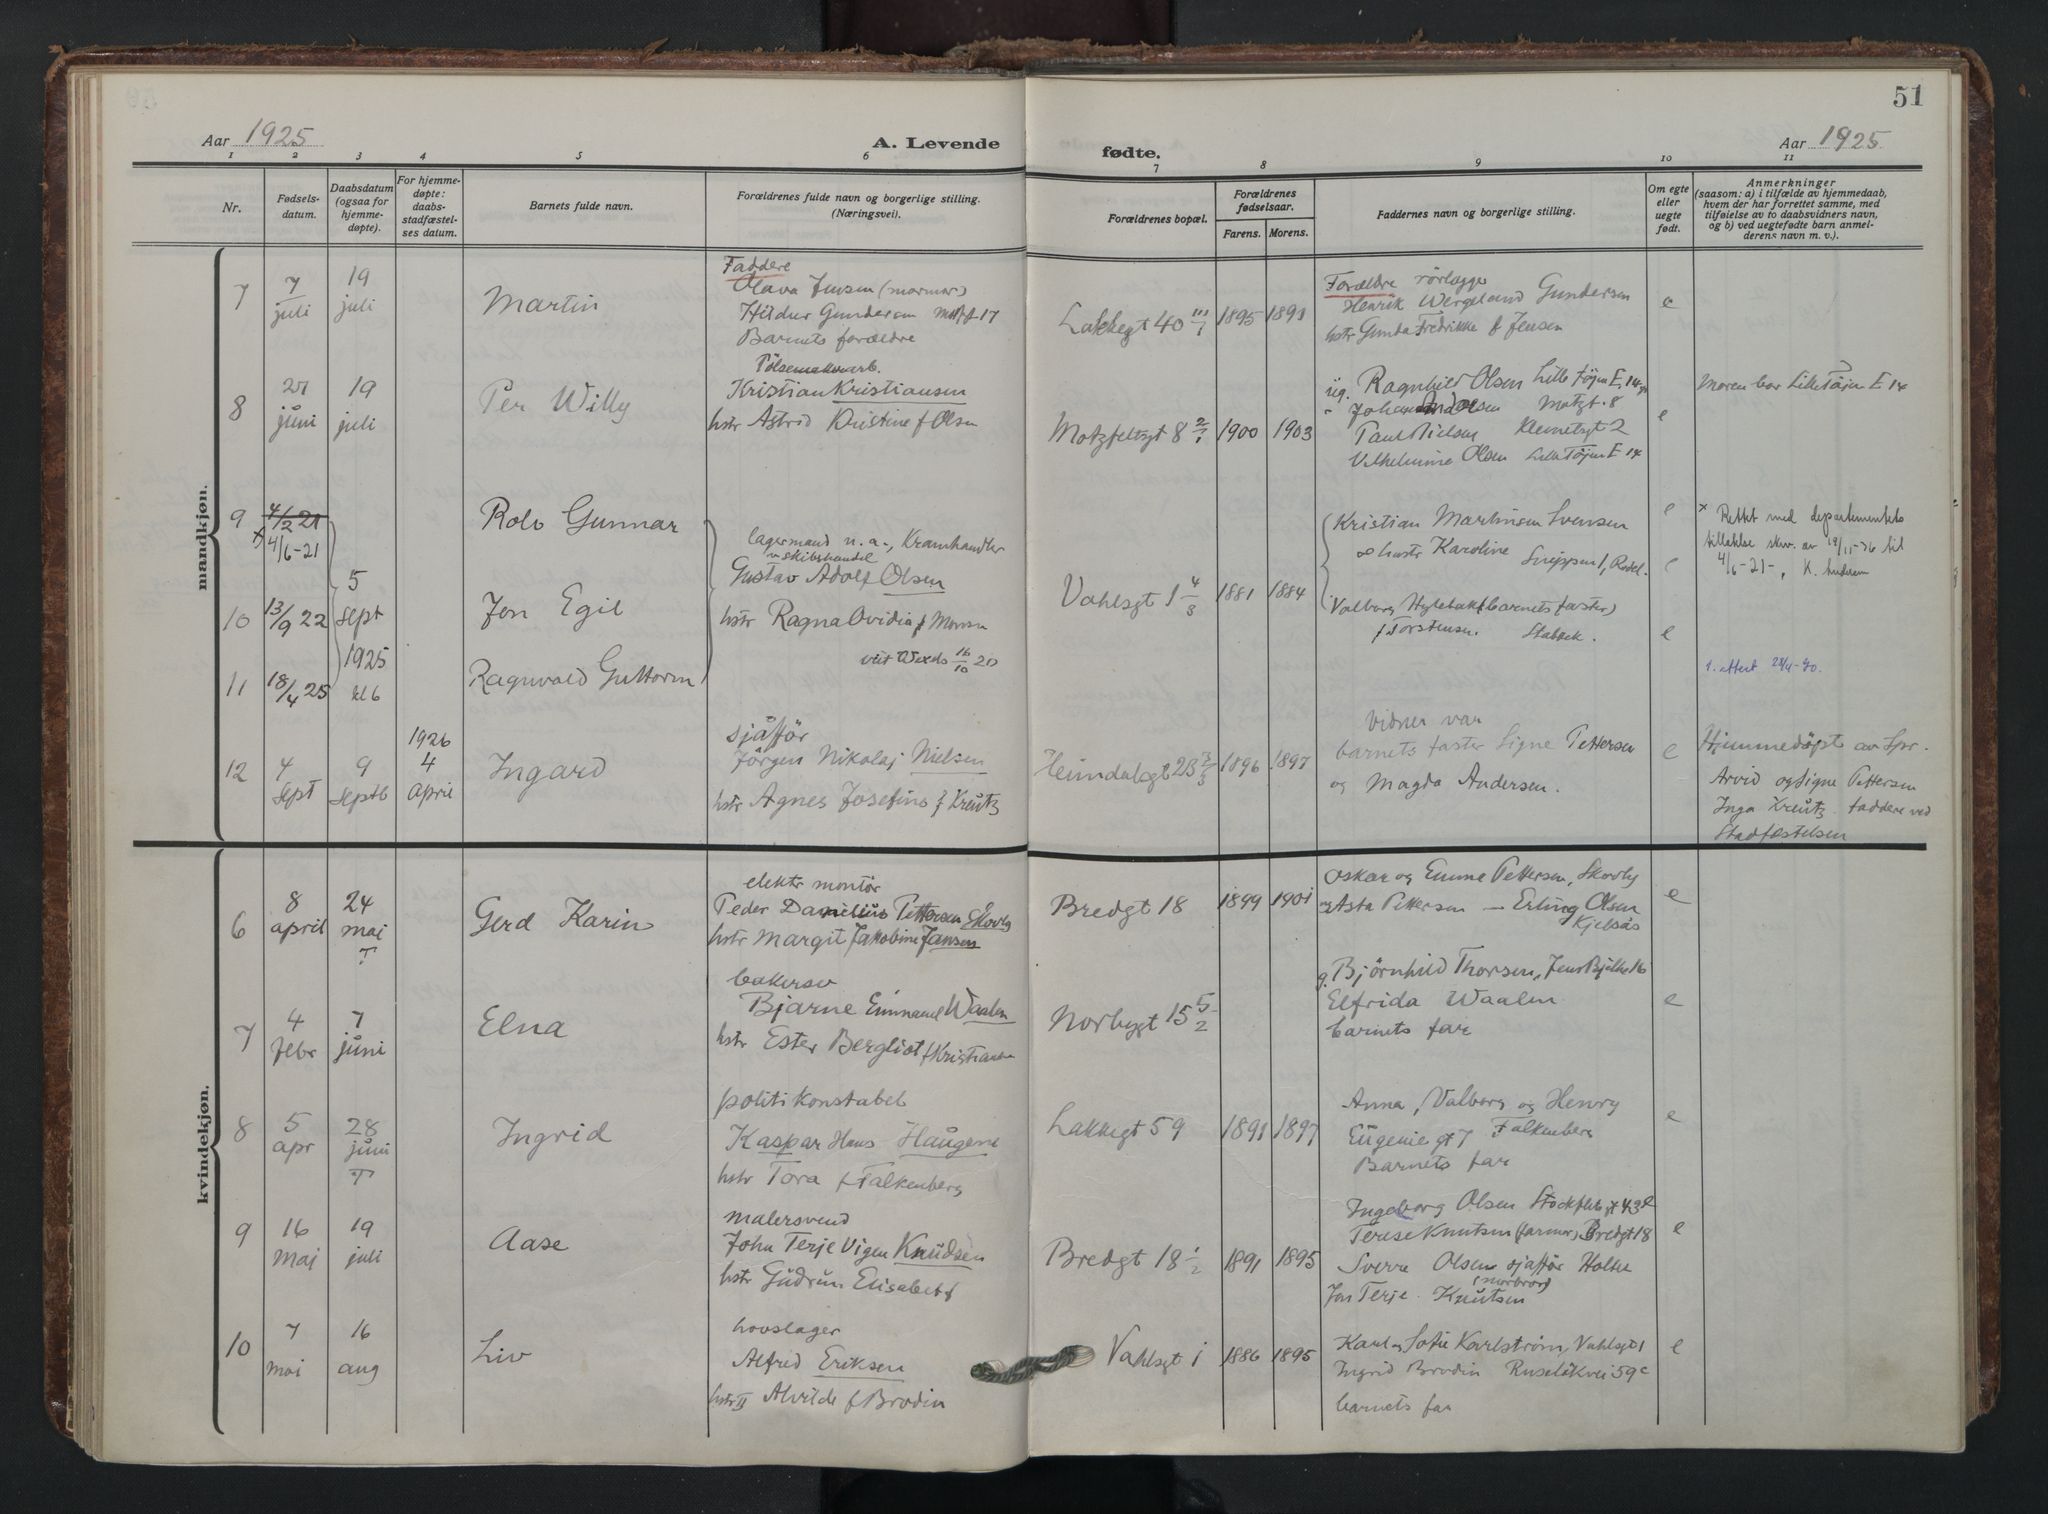 51
Aar 1925
A. Levende
fødte.
Aar 1925
1 2 3 4 5 6 7 8 9 10 11
Nr.
Fødsels-
datum.
Daabsdatum
(ogsaa for
hjemme-
døpte).
For hjemme-
døpte:
daabs-
stadfæstel-
ses datum.
Barnets fulde navn.
Forældrenes fulde navn og borgerlige stilling.
(Næringsvei).
Forældrenes bopæl.
Forældrenes
fødselsaar.
Farens. Morens.
Faddernes navn og borgerlige stilling.
Om egte
eller
uegte
født.
Anmerkninger
(saasom: a) i tilfælde av hjemmedaab,
hvem der har forrettet samme, med
tilføielse av to daabsvidners navn,
og b) ved uegtefødte barn anmel-
derens navn m. v.).
mandkjøn.
7
7
juli
19
juli
Martin
Faddere
Olava Jensen (mormor)
Hildur Gundersen 17
Barnets forældre
Lakkegt 40 III/1
1895 1891
Forældre rørlægger
Henrik Wergeland Gundersen
hstr Gunda Fredrikke f Jensen
e
8
21
juni
19
juli
Per Willy
Pølsemakerarb.
Kristian Kristiansen
hstr Astrid Kristine f Olsen
Motzfeltsgt 8 2/1
1900 1903
ug. Ragnhild Olsen Lille Tøjen E. 14
Motzgt. 8
Paul Nielsen 2
Vilhelmine Olsen Lille Tøjen E 14
e
Moren bor Lille Tøjen E 14
9
4/2 21
x 4/6-21
Rolv Gunnar
lagermand n.a., Kramhandler
skibshandel
Gustav Adolf Olsen
hstr Ragna Ovidia f Monsen
viet 16/10 20
Vahlsgt 1 4/3
1881 1884
Kristian Martinsen Svensen
og hustr Karoline Snippen 1,
Valborg (barnets faster)
f Torstensen. Stabæk.
e
x Rettet med departementets
tillatelse skr. av 19/11-36 til
4/6-21-, K. Andersen
10
13/9 22
5
sept
1925
kl 6
Jon Egil
e
11
18/4 25
Ragnvald Guttorm
e
1. attest 28/4-40.
12
4
sept
9
septb
1926
4
april
Ingard
sjåffør
Jørgen Nikolaj Nielsen
hstr Agnes Josefine f Kreutz
Heimdalsgt 23 3/3
1896 1897
Vidner var
barnets faster Signe Pettersen
og Magda Andersen.
e
Hjemmedøpt av Spr.
Arvid og Signe Pettersen
Inga Kreutz faddere ved
Stadfæstelsen
kvindekjøn.
6
8
april
24
mai
T
Gerd Karin
elektr montør
Peder Danielius Pettersen Skovly
hstr Margit Jakobine Jansen
Bredgt 18
1899 1901
Oskar og Emma Pettersen, Skovly
og Asta Pettersen – Erling Olsen
Kjelsås
e
7
4
febr
7
juni
Elna
bakersv
Bjarne Emmanuel Waalen
hstr Ester Bergliot f Kristiansen
Norbygt 15 5/2
g. Bjørnhild Thorsen, Jens Bjelke 16
Elfrida Waalen
barnets far
e
8
5
apr
28
juni
T
Ingrid
politikonstabel
Kaspar Hans Haugene
hstr Tora f Falkenberg
Lakkegt 59
1891 1897
Anna, Valborg og Henry
Eugenie gt 7 Falkenberg
Barnets far
e
9
16
mai
19
juli
Aase
malersvend
John Terje Vigen Knudsen
hstr Gudrun Elisabet f
Bredgt 18 1/2
1891 1895
Ingeborg Olsen Stockfletsgt 43
Terese Knutsen (farmor) Bredgt 18
Sverre Olsen sjåffør Holter
(morbror)
Jon Terje Knutsen
e
10
7
mai
16
aug
Liv
hovslager
Alfred Eriksen
hstr II Alvilde f Brodin
Vahlsgt 1
1886 1895
Karl og Sofie Karlstrøm, Vahlsgt 1
Ingrid Brodin Ruseløkvei 59 c
barnets far
e